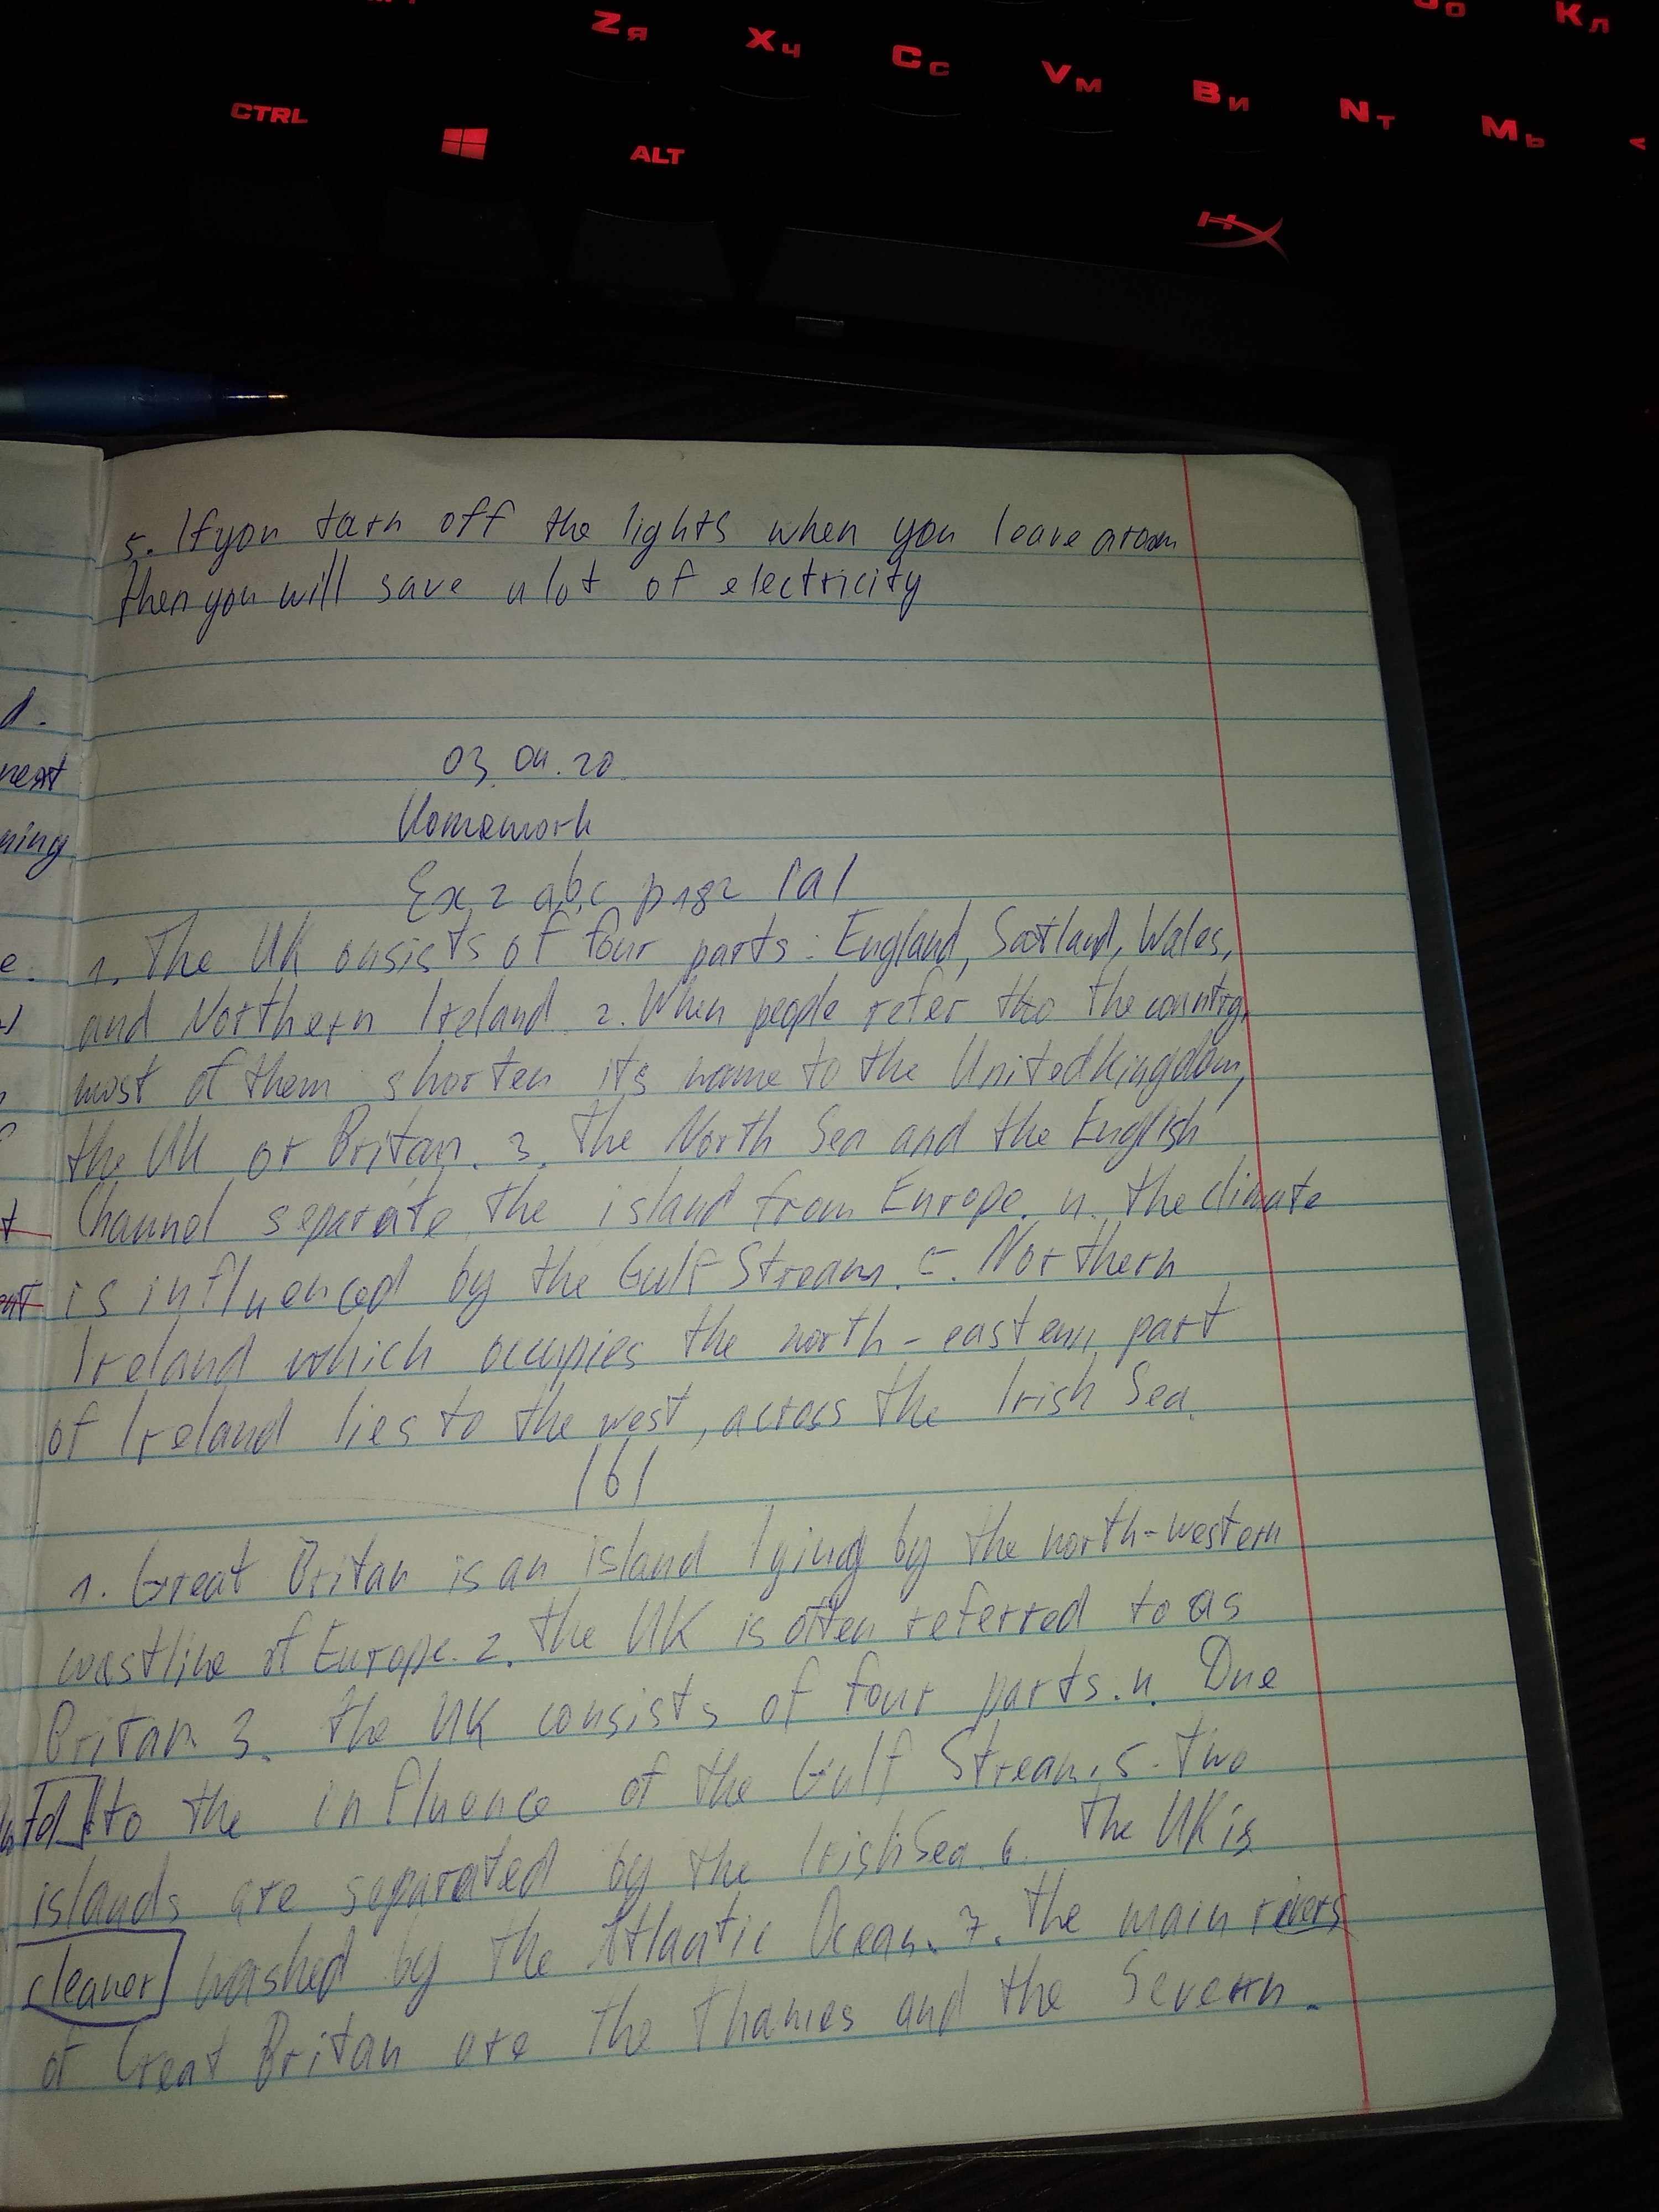 Zя Xч Cс Vм Bи Nт Mь Кл
CTRL ALT
HX
5. If you turn off the lights when you leave a room
then you will save a lot of electricity
d.
next
ning
03.04.20.
Homework
Ex 2 a,b,c p 182 /a/
e. 1. The UK onsists of four parts: England, Scotland, Wales,
and Northern Ireland. 2. When people refer tho the country,
most of them shorten its name to the United kingdom,
the UK or Britan. 3. The North Sea and the English
Channel separate the island from Europe. 4. The climate
is influenced by the Gulf Stream. 5. Northern
Ireland which occupies the north-eastern part
of Ireland lies to the west, across the Irish Sea.
/b/
1. Great Britan is an island lying by the north-western
coastline of Europe. 2. The UK is often referred to as
Britan. 3. The UK consists of four parts. 4. Due
to the influence of the Gulf Stream. 5. Two
islands are separated by the Irish Sea. 6. The UK is
cleaner washed by the Atlantic Ocean. 7. The main rivers
of Great Britan are the Thames and the Severn.